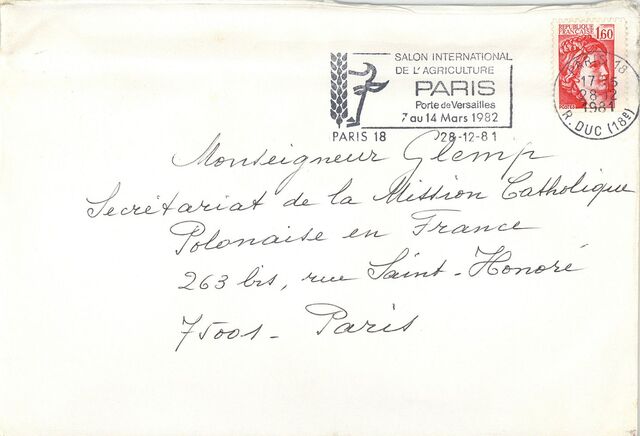 REPUBLIQUE
FRANCAISE
1,60
SALON INTERNATIONAL
DE L'AGRICULTURE
PARIS
Porte de Versailles
7 au 14 Mars 1982
PARIS 18 28-12-81
18
17
28-12
1981
R. DUC (18e)
Monseigneur Glemp
Secrétariat de la Mission Catholique
Polonaise en France
263 bis, rue Saint-Honoré
75001 - Paris